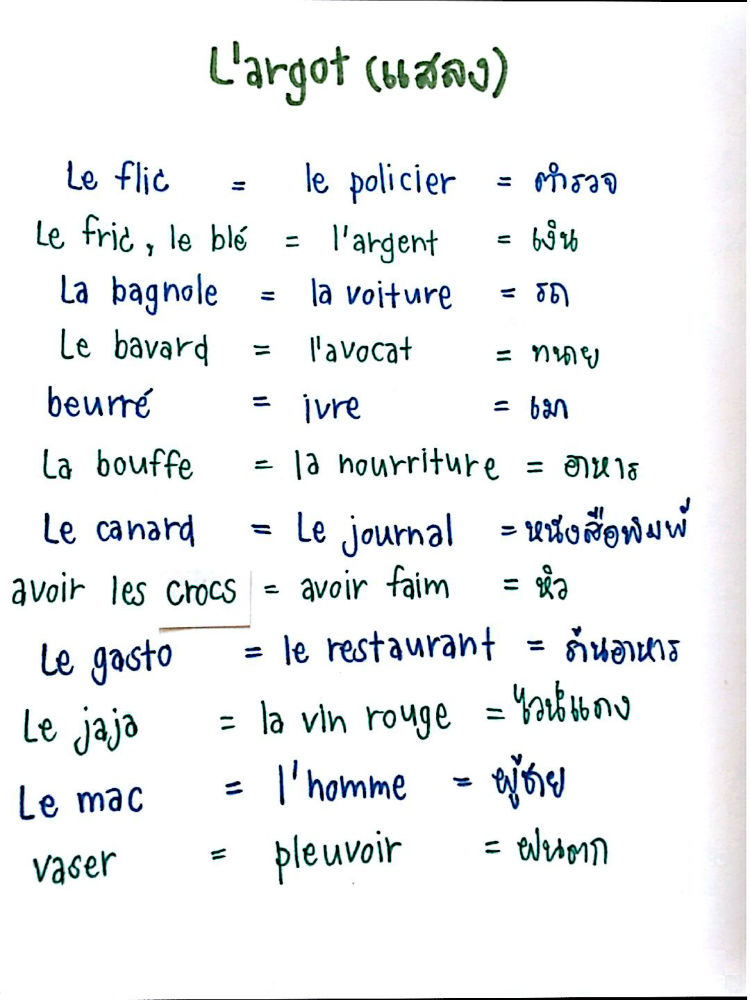 L'argot (แสลง)
Le flic = le policier = ตำรวจ
Le fric, le blé = l'argent = เงิน
La bagnole = la voiture = รถ
Le bavard = l'avocat = ทนาย
beurré = ivre = เมา
La bouffe = la nourriture = อาหาร
Le canard = Le journal = หนังสือพิมพ์
avoir les crocs = avoir faim = หิว
Le gasto = le restaurant = ร้านอาหาร
Le jaja = la vin rouge = ไวน์แดง
Le mac = l'homme = ผู้ชาย
vaser = pleuvoir = ฝนตก